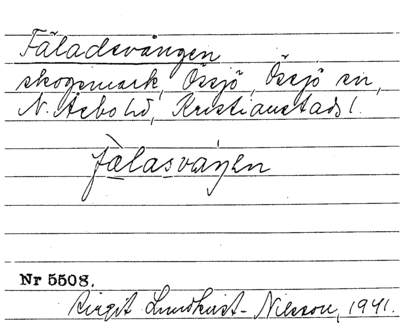 Fäladsvången
skogsmark, Össjö, Össjö sn,
N. Åsbo hd, Kristianstads l.
fälasvaŋen
Nr 5508.
Birgit Lundkvist-Nilsson, 1941.